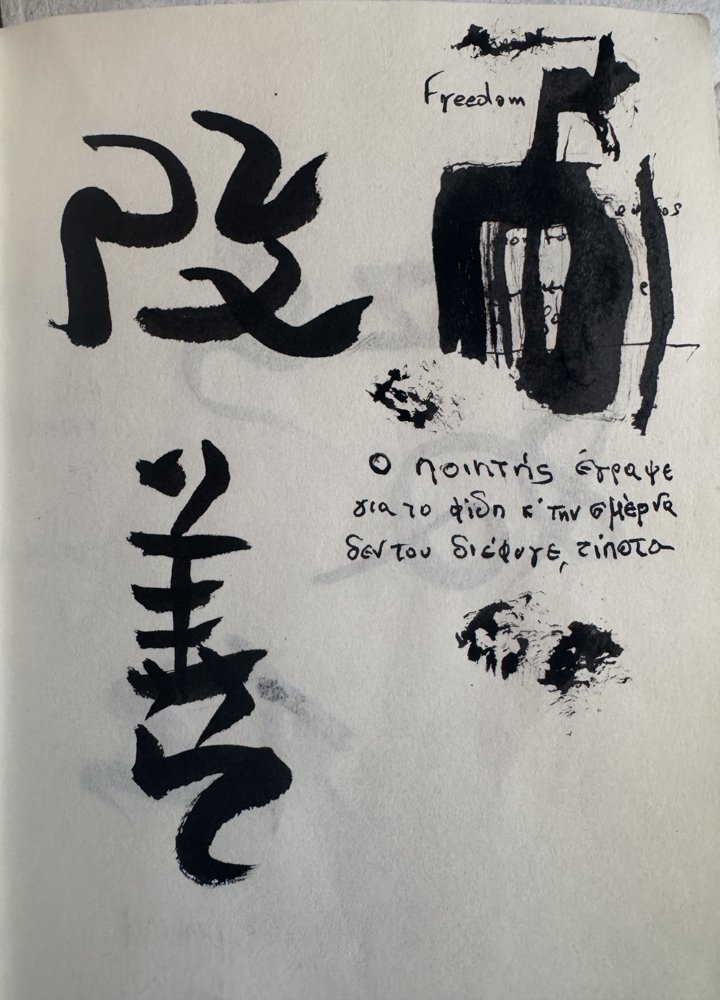 改
善
Freedom
Ο ποιητής έγραψε
για το φίδη κ' την σμέρνα
δεν του διέφυγε, τίποτα